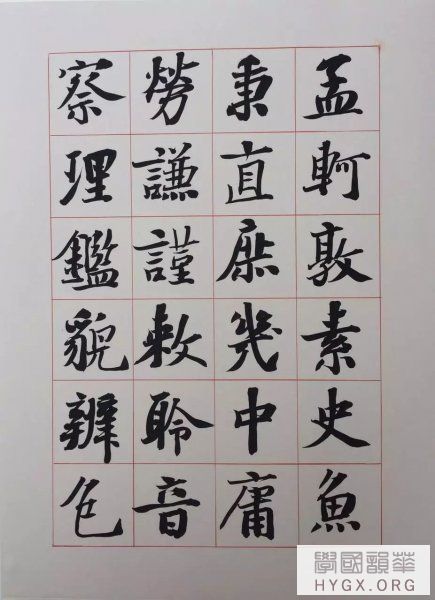 孟軻敦素史魚
秉直庶幾中庸
勞謙謹敕聆音
察理鑑貌辨色
華韻國學
HYGX.ORG